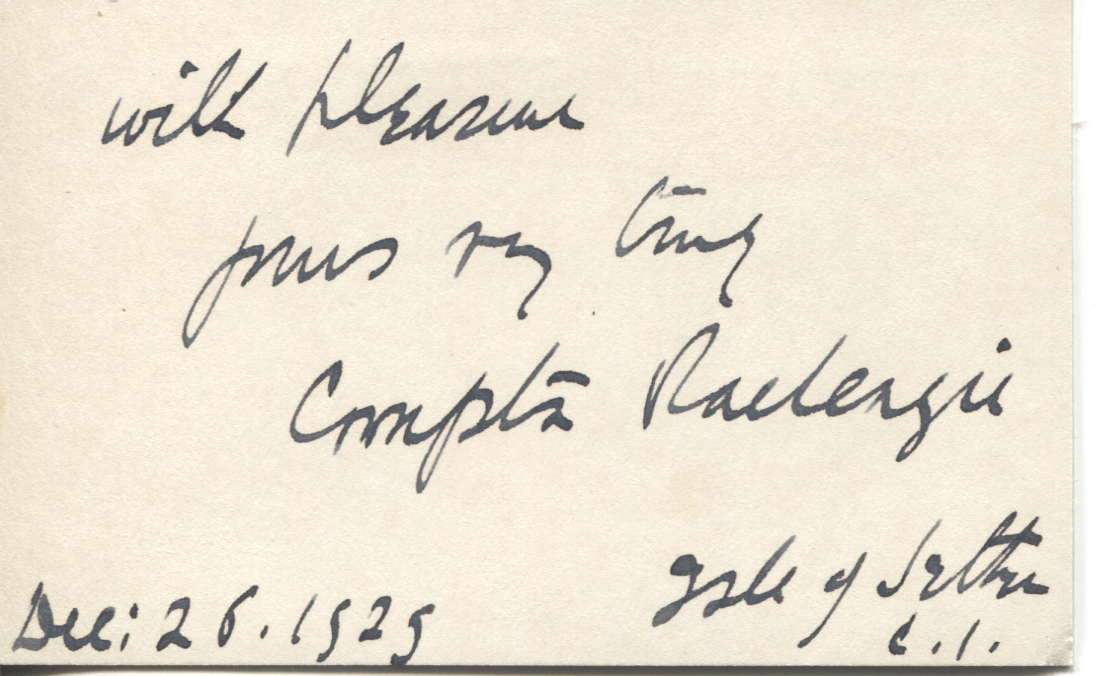 with pleasure
yours very truly
Compton Mackenzie
Isle of Jethou
C.I.
Dec: 26. 1929